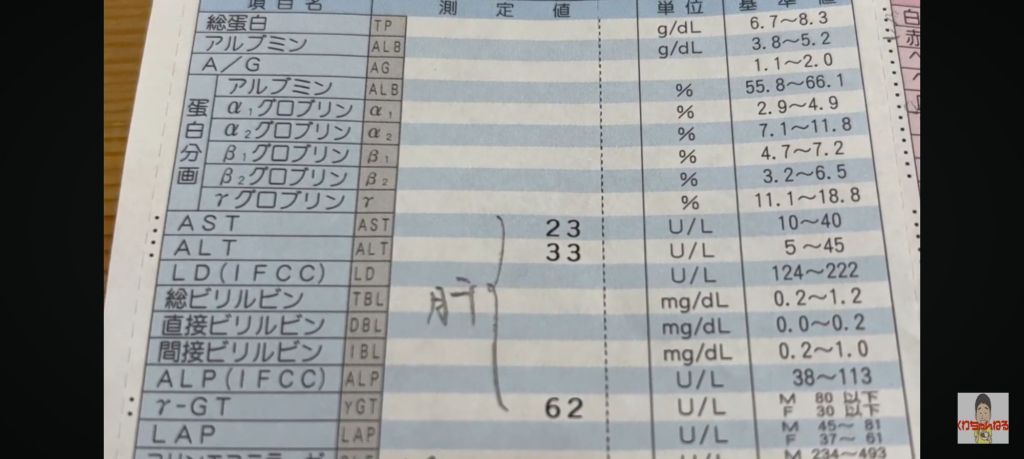 項目名 測定値 単位 基準値
総蛋白 TP g/dL 6.7～8.3
アルブミン ALB g/dL 3.8～5.2
A/G AG 1.1～2.0
蛋白分画
アルブミン ALB % 55.8～66.1
α₁グロブリン α₁ % 2.9～4.9
α₂グロブリン α₂ % 7.1～11.8
β₁グロブリン β₁ % 4.7～7.2
β₂グロブリン β₂ % 3.2～6.5
γグロブリン γ % 11.1～18.8
AST AST 23 U/L 10～40
ALT ALT 33 U/L 5～45
LD(IFCC) LD U/L 124～222
総ビリルビン TBL mg/dL 0.2～1.2
肝
直接ビリルビン DBL mg/dL 0.0～0.2
間接ビリルビン IBL mg/dL 0.2～1.0
ALP(IFCC) ALP U/L 38～113
γ-GT γGT 62 U/L M 80 以下
F 30 以下
LAP LAP U/L M 45～81
F 37～61
M 234～493
白
赤
くわちゃんねる